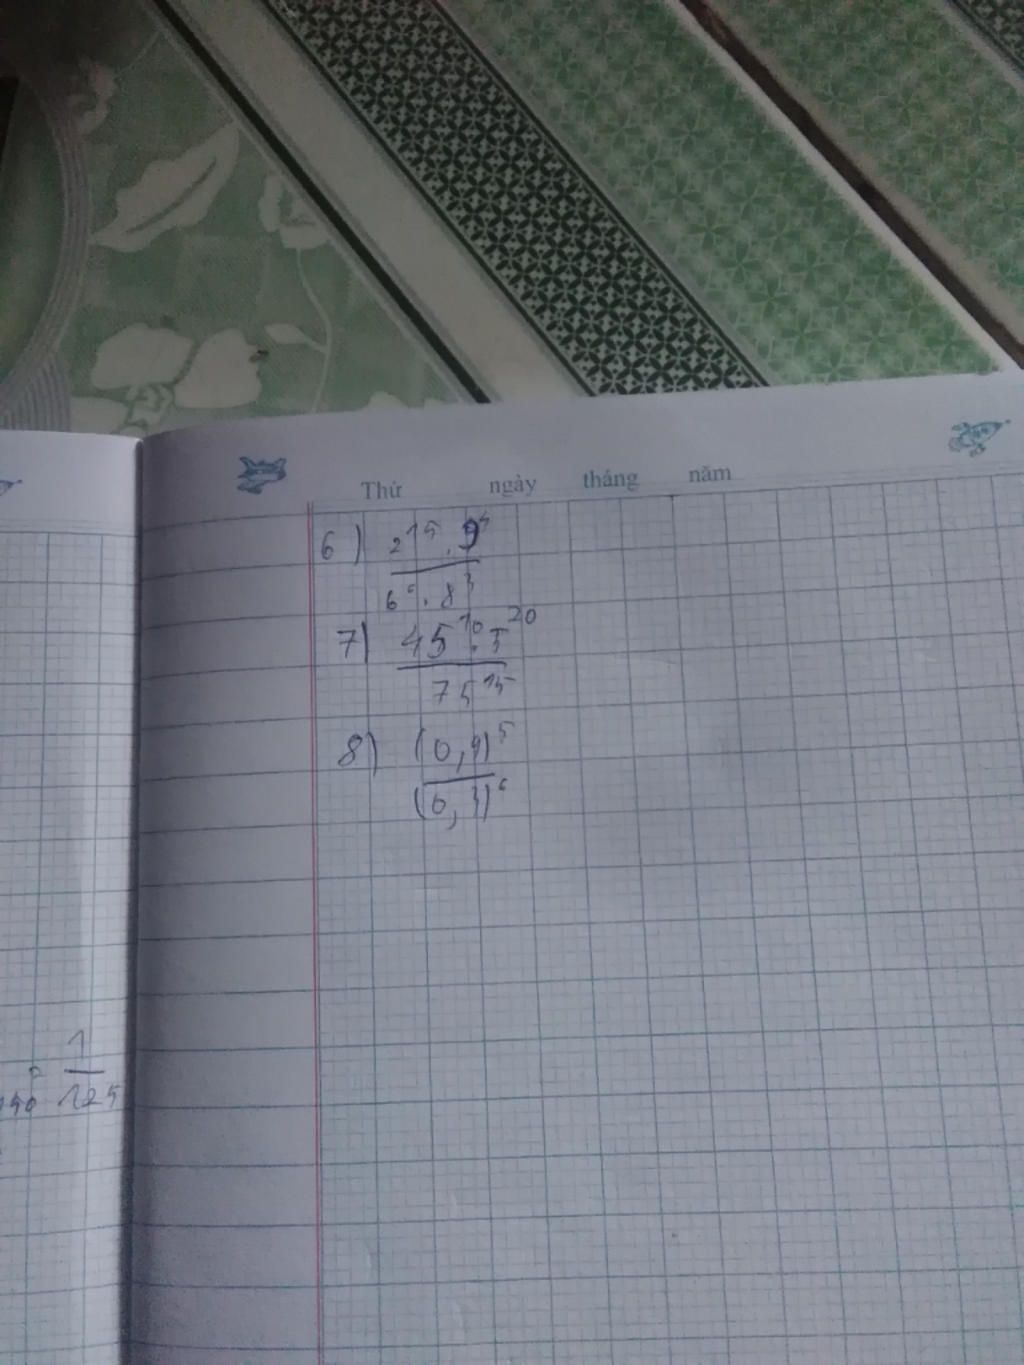 Thứ ngày tháng năm
6) 2^15 . 9^4
6^6 . 8^3
7) 45^10 . 5^20
75^15
8) (0,9)^5
(0,3)^6
1
125